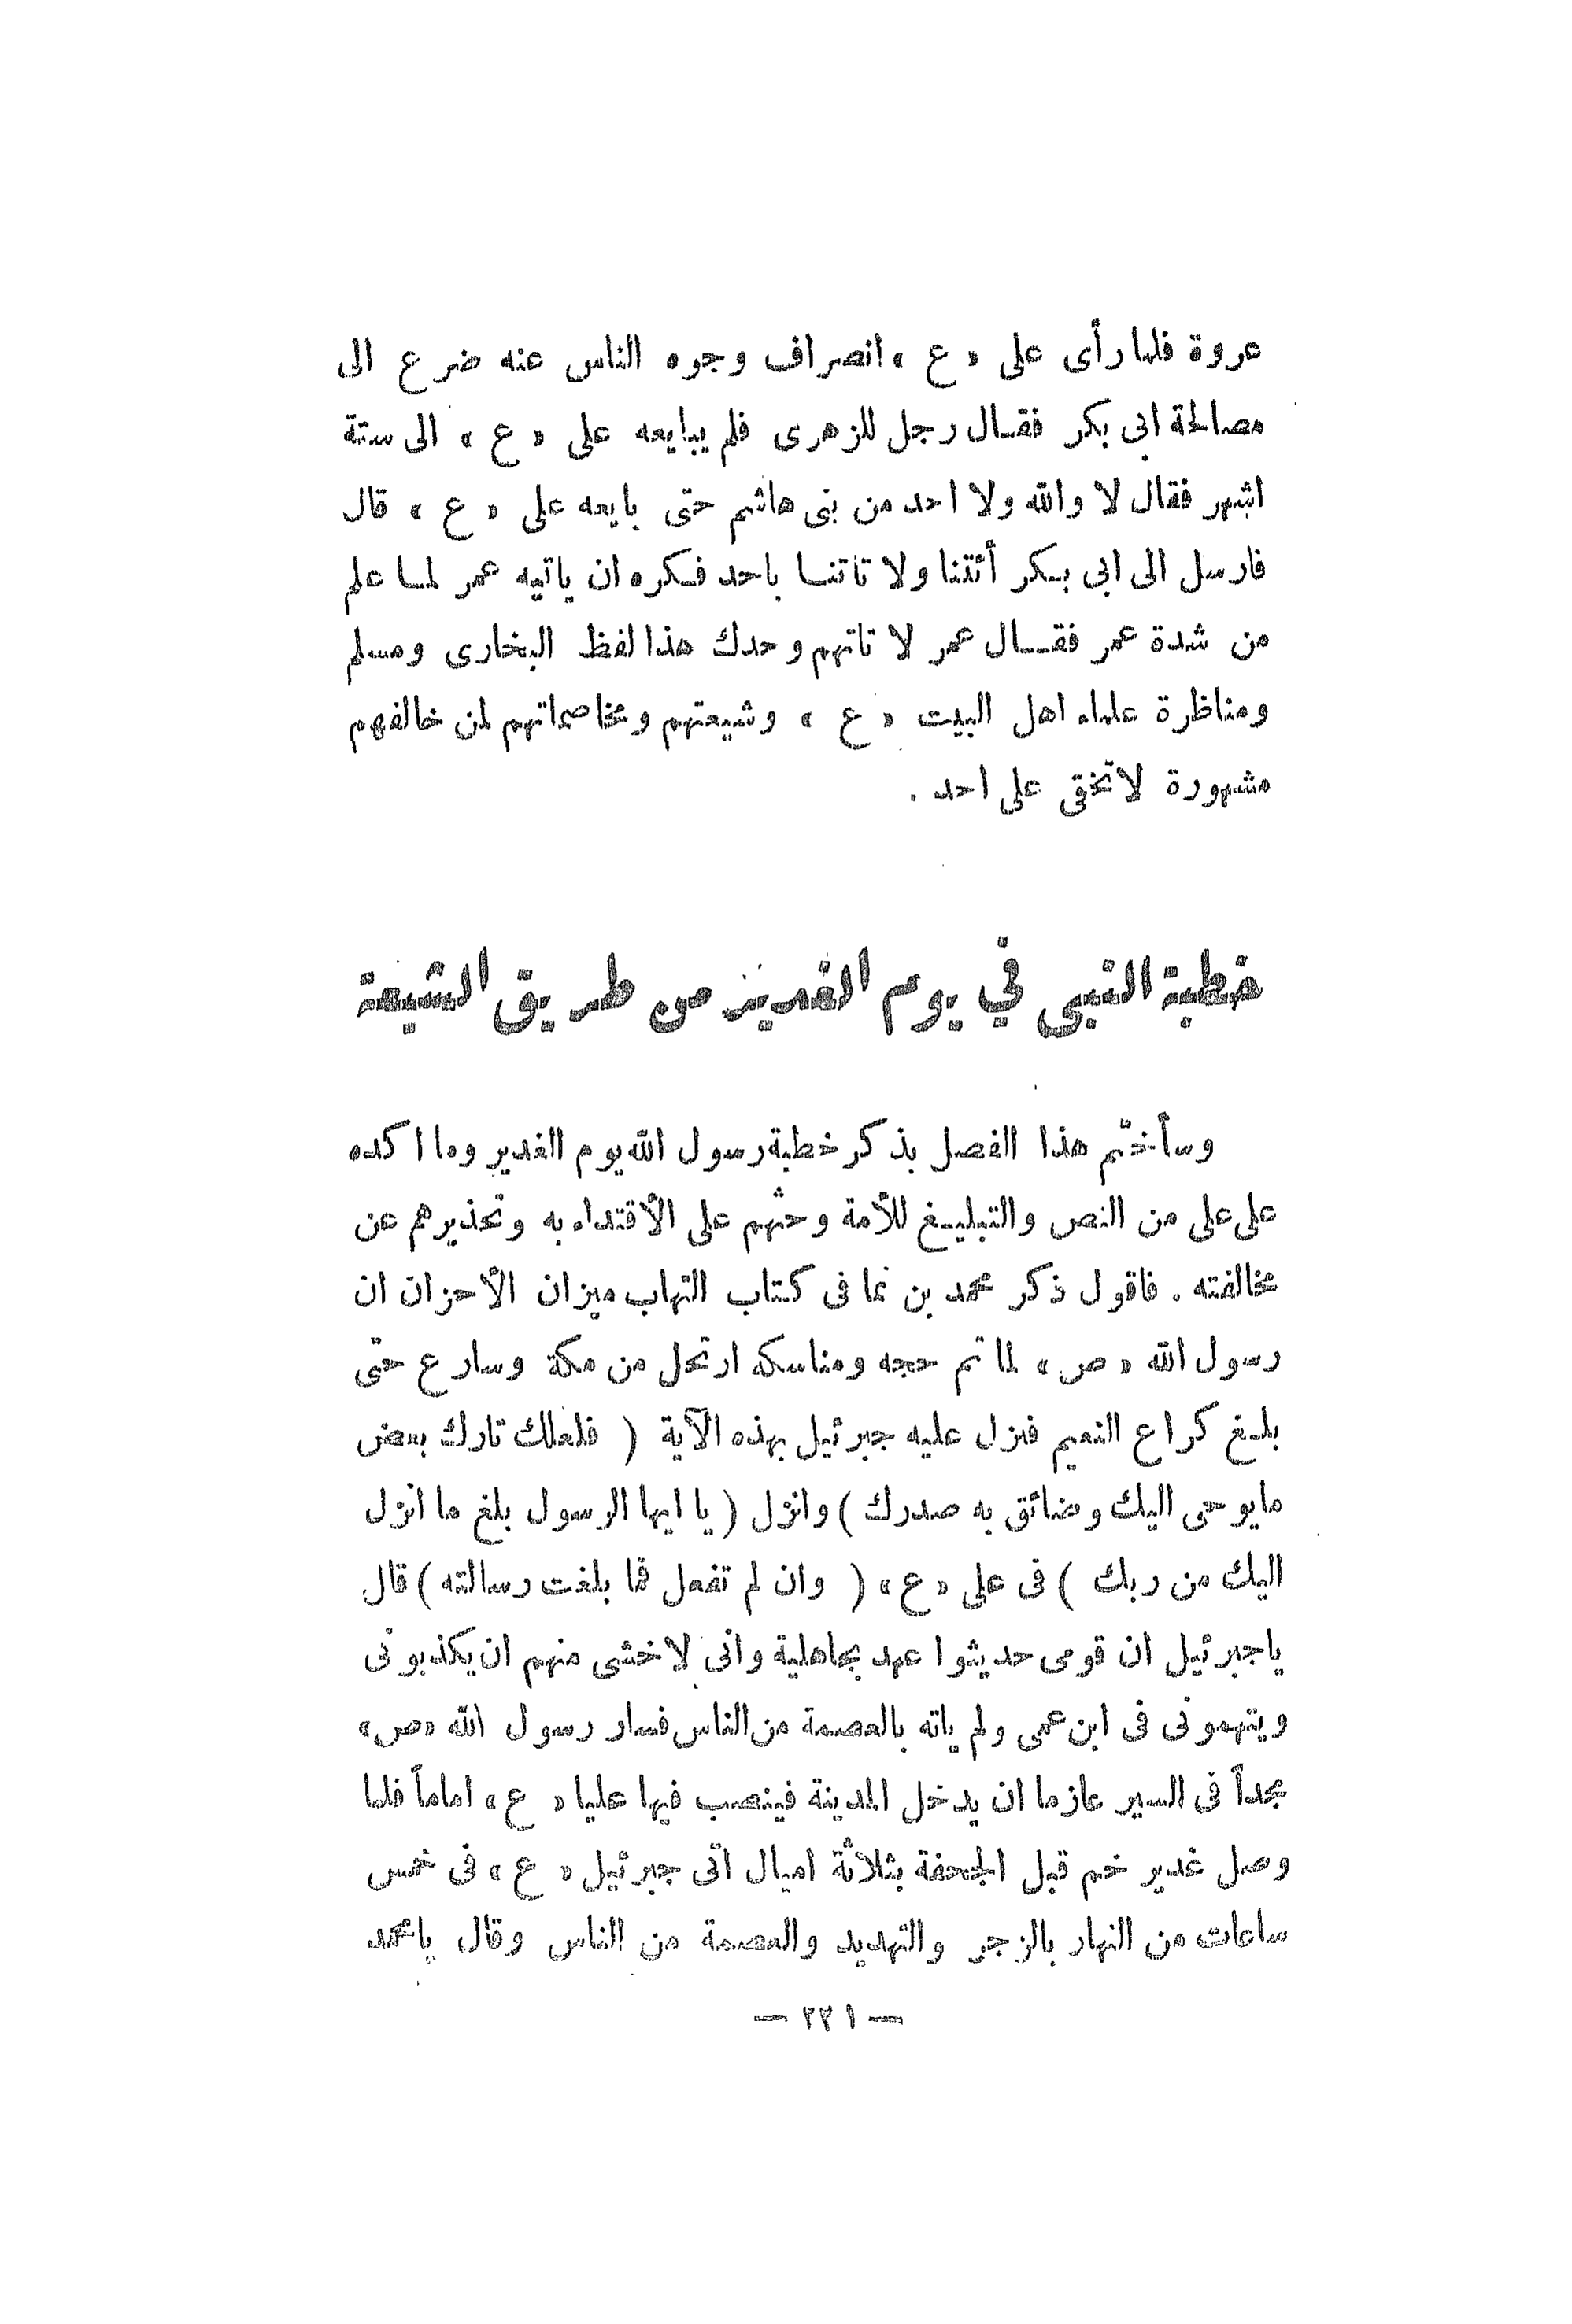 عروة فلما رأى على « ع » انصراف وجوه الناس عنه ضرع الى
مصالحة ابى بكر فقال رجل للزهرى فلم يبايعه على « ع » الى ستة
اشهر فقال لا والله ولا احد من بنى هاشم حتى بايعه على « ع » قال
فارسل الى ابى بكر أئتنا ولا تاتنا باحد فكره ان ياتيه عمر لما علم
من شدة عمر فقال عمر لا تاتهم وحدك هذا لفظ البخارى ومسلم
ومناظرة علماء اهل البيت « ع » وشيعتهم ومخاصماتهم لمن خالفهم
مشهورة لاتخفى على احد .
خطبة النبي في يوم الغدير من طريق الشيعة
وسأختم هذا الفصل بذكر خطبة رسول الله يوم الغدير وما اكده
على على من النص والتبليغ للأمة وحثهم على الأقتداء به وتحذيرهم عن
مخالفته . فاقول ذكر محمد بن نما فى كتاب التهاب ميزان الأحزان ان
رسول الله « ص » لما تم حجه ومناسكه ارتحل من مكة وسارع حتى
بلغ كراع النعيم فنزل عليه جبرئيل بهذه الآية ( فلعلك تارك بعض
مايوحى اليك وضائق به صدرك ) وانزل ( يا ايها الرسول بلغ ما انزل
اليك من ربك ) فى على « ع » ( وان لم تفعل فما بلغت رسالته ) قال
ياجبرئيل ان قومى حديثوا عهد بجاهلية وانى لاخشى منهم ان يكذبونى
ويتهمونى فى ابن عمى ولم ياته بالعصمة من الناس فسار رسول الله «ص»
مجداً فى السير عازما ان يدخل المدينة فينصب فيها عليا « ع » اماماً فلما
وصل غدير خم قبل الجحفة بثلاثة اميال اتى جبرئيل « ع » فى خمس
ساعات من النهار بالزجر والتهديد والعصمة من الناس وقال يامحمد
— ٢٢١ —